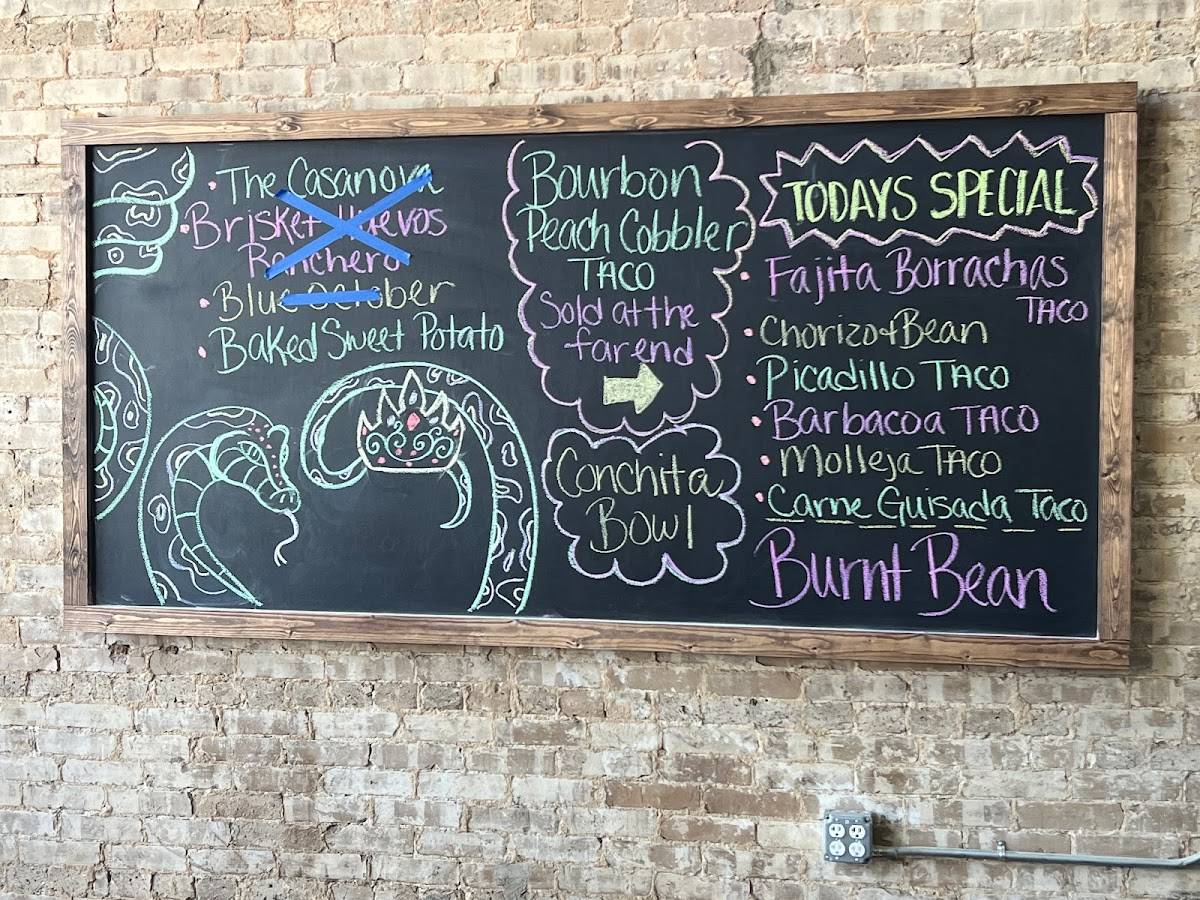 The Casanova
Brisket Huevos
Ranchero
Blue October
Baked Sweet Potato
Bourbon
Peach Cobbler
TACO
Sold at the
far end
Conchita
Bowl
TODAYS SPECIAL
Fajita Borrachas
TACO
Chorizo & Bean
Picadillo TACO
Barbacoa TACO
Molleja TACO
Carne Guisada Taco
Burnt Bean